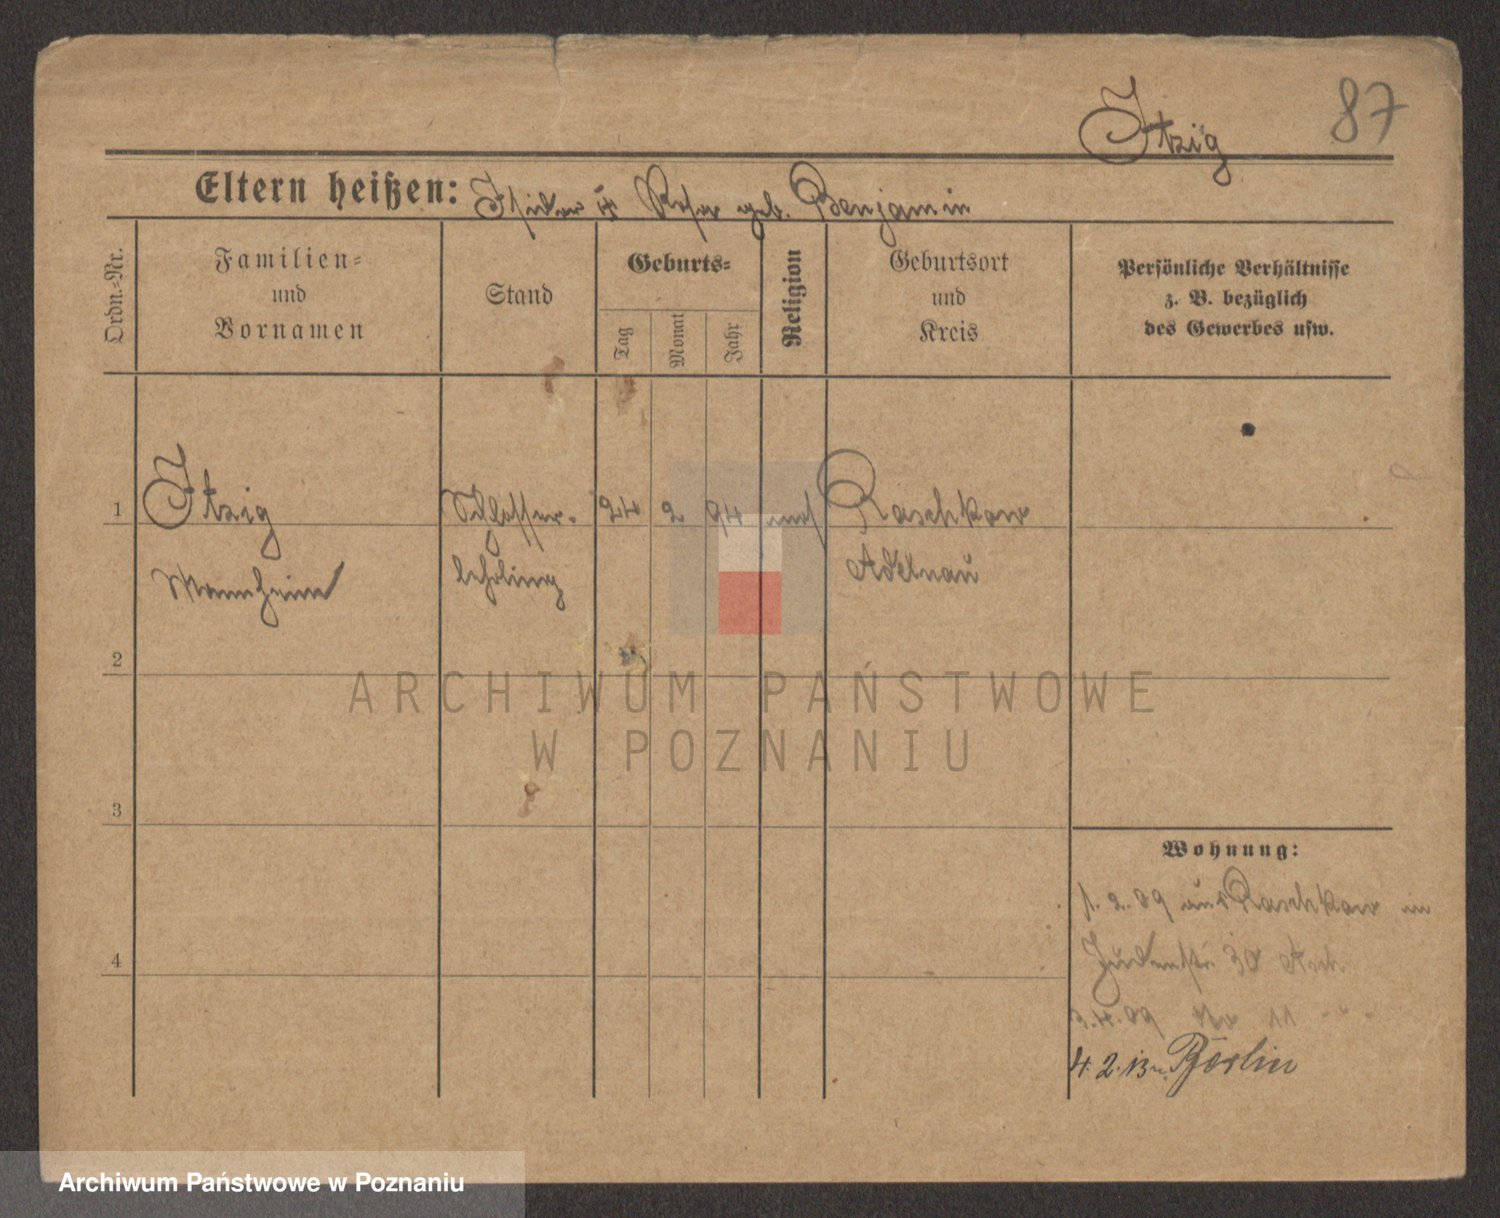 Itzig
87
Eltern heißen: Isidor u Rosa geb. Benjamin
Ordn.-Nr.
Familien-
und
Vornamen
Stand
Geburts-
Tag
Monat
Jahr
Religion
Geburtsort
und
Kreis
Persönliche Verhältnisse
z. B. bezüglich
des Gewerbes usw.
1
Itzig
Mannheim
Schlosser-
lehrling
24
2
94
mos
Raschkow
Adelnau
2
3
4
ARCHIWUM PAŃSTWOWE
W POZNANIU
Wohnung:
1. 2. 09 aus Raschkow in
Judenstr. 30
3. 4. 09 11 " "
4. 2. 13 n. Berlin
Archiwum Państwowe w Poznaniu